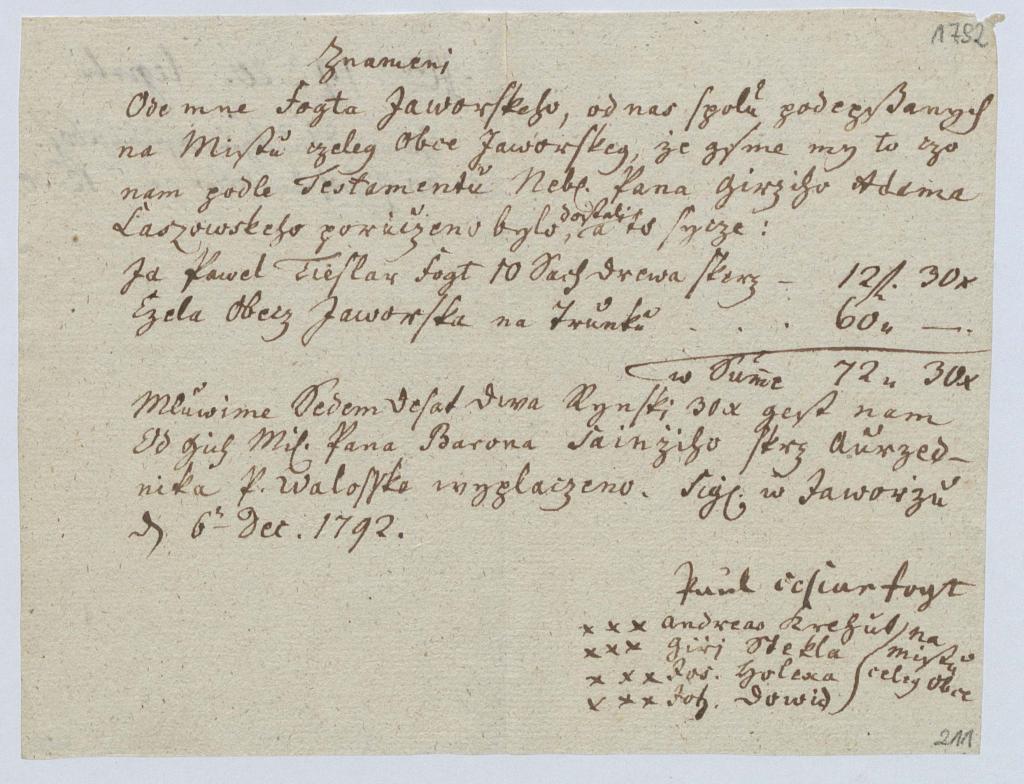 1792
Znameni
Ode mne Fogta Jaworskeho, od nas spolu podepsanych
na Mistu czeleg Obce Jaworskeg, że gsme my to czo
nam podle Testamentu Neb. Pana Girziho Adama
Laszowskeho poruczeno bylo, dostali a to sycze:
Ja Pawel Tieslar Fogt 10 Sach drewa skrz – 12 f. 30 x
Czela Obecz Jaworska na Trunku . . . 60 „ —.
w Summe 72 „ 30 x
Mluwime Sedem desat dwa Rynski 30 x gest nam
Od Gich Mil. Pana Barona skrz Aurzed-
nika P. Walosske wyplaczeno. Sig. w Jaworzu
d. 6ᵗ Dec. 1792.
Paul fogt
x x x andreas Krehut na
x x x Giri Stekla mistu
x x x Jos. Holexa celeg obce
x x x Joh. Dowid
211